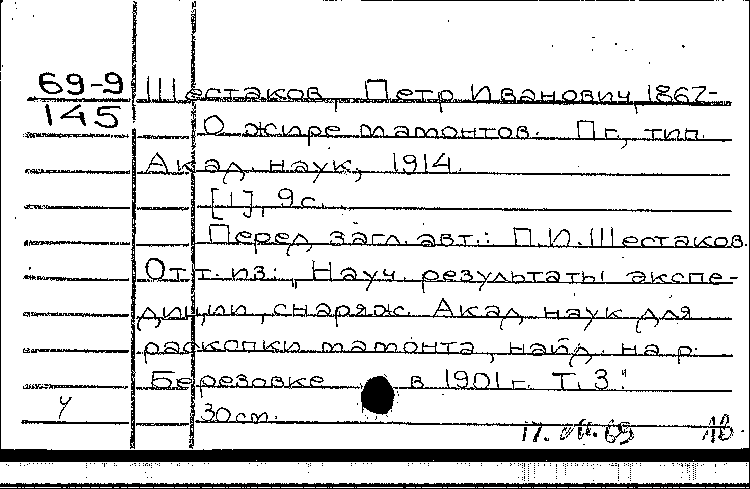 69-9 Шестаков, Петр Иванович, 1867-
145 О жире мамонтов. Пг., тип.
Акад. наук, 1914.
[1], 9 с.
Перед загл. авт.: П.И.Шестаков.
Отт. из: "Науч. результаты экспе-
диции, снаряж. Акад. наук для
раскопки мамонта, найд. на р.
Березовке в 1901 г. Т. 3."
30 см.
17.VII.69